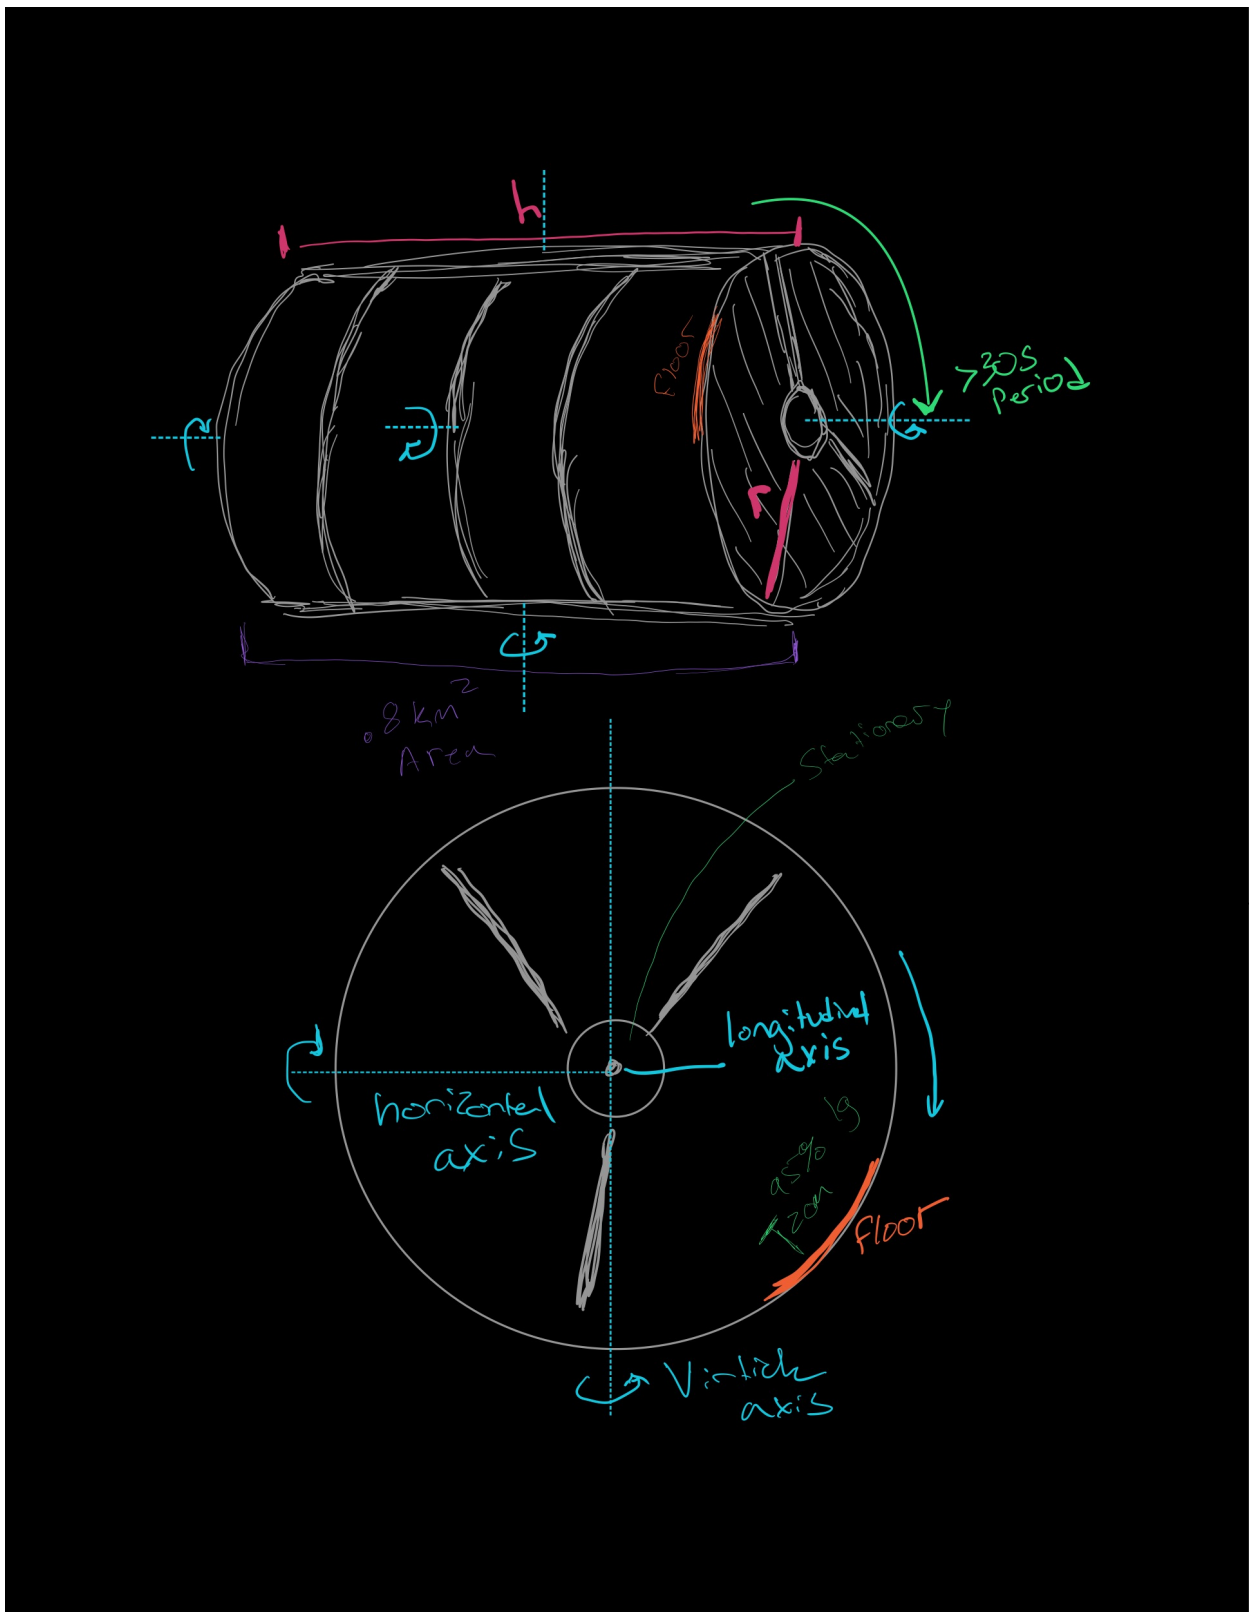 h
floor
>30s
period
r
.8km²
Area
Stationary
longitudinal
axis
horizontal
axis
95% 1g
20m
floor
Virtick
axis